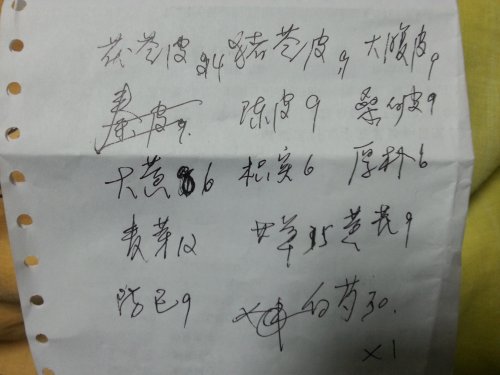 茯苓皮24 猪苓皮9 大腹皮9
秦皮9 陈皮9 桑白皮9
大黄6 枳实6 厚朴6
麦芽12 甘草15 黄芪9
防己9 白芍30
×1